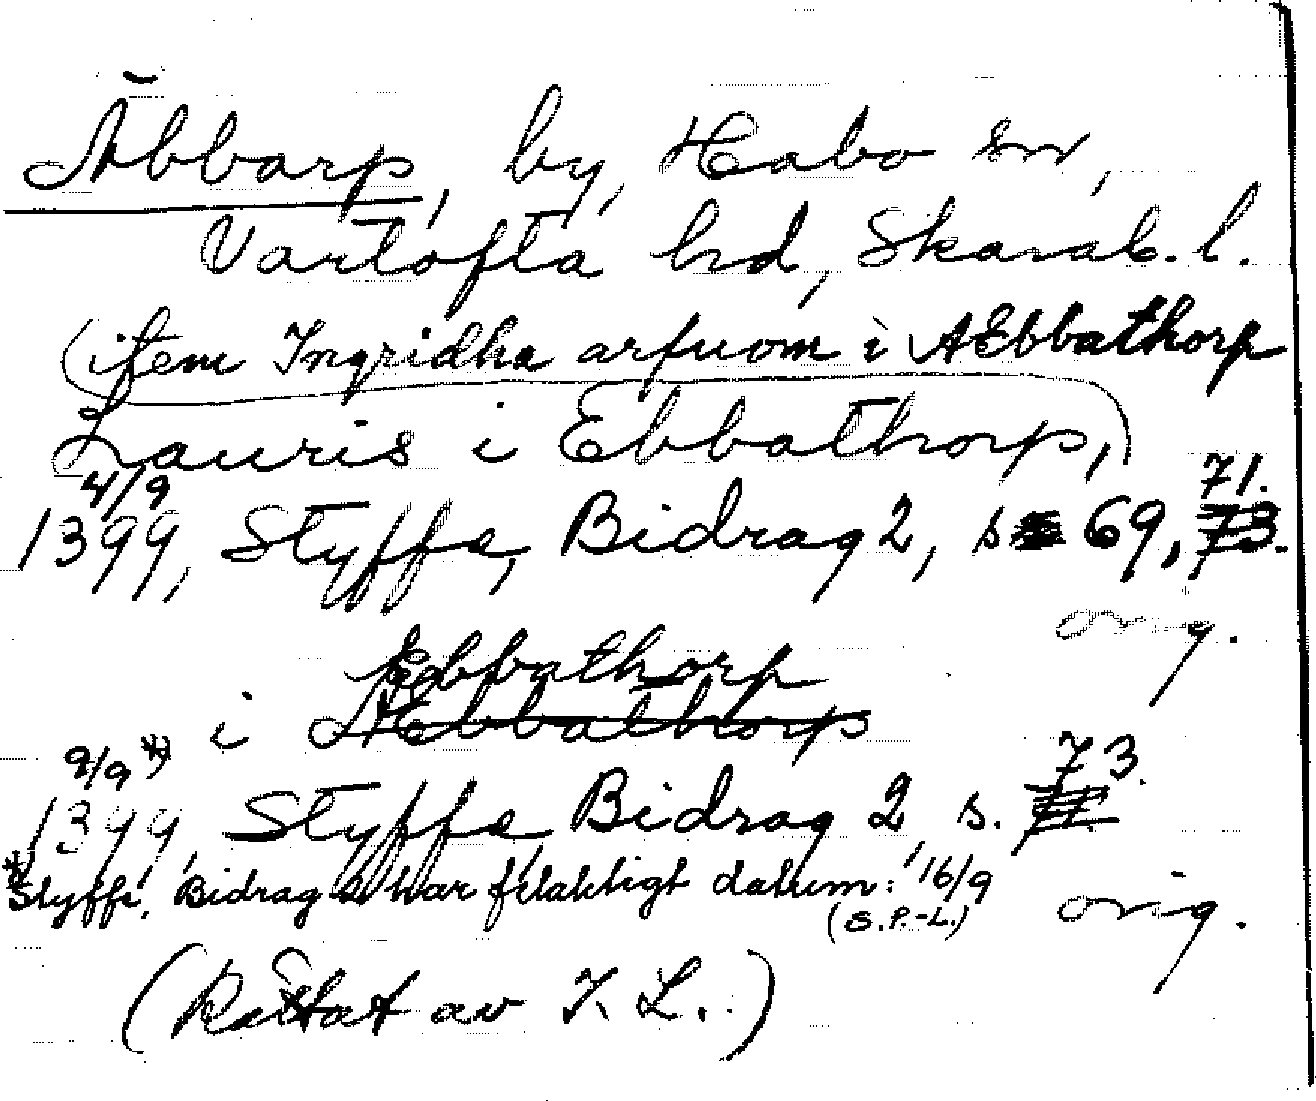 Äbbarp, by, Habo sn,
Vartofta hd, Skarab. l.
(item Ingridha arfuom i AEbbathorp
Lauris i Ebbathorp,)
4/9 71.
1399, Styffe, Bidrag 2, s 69, 73.
orig.
Aebbathorp
i AEbbathorp
9/9 *) 73.
1399, Styffe, Bidrag 2, s.
* Styffe, Bidrag 2 har felaktigt datum: 16/9
(S.P.-L.) orig.
(Rättat av K L.)